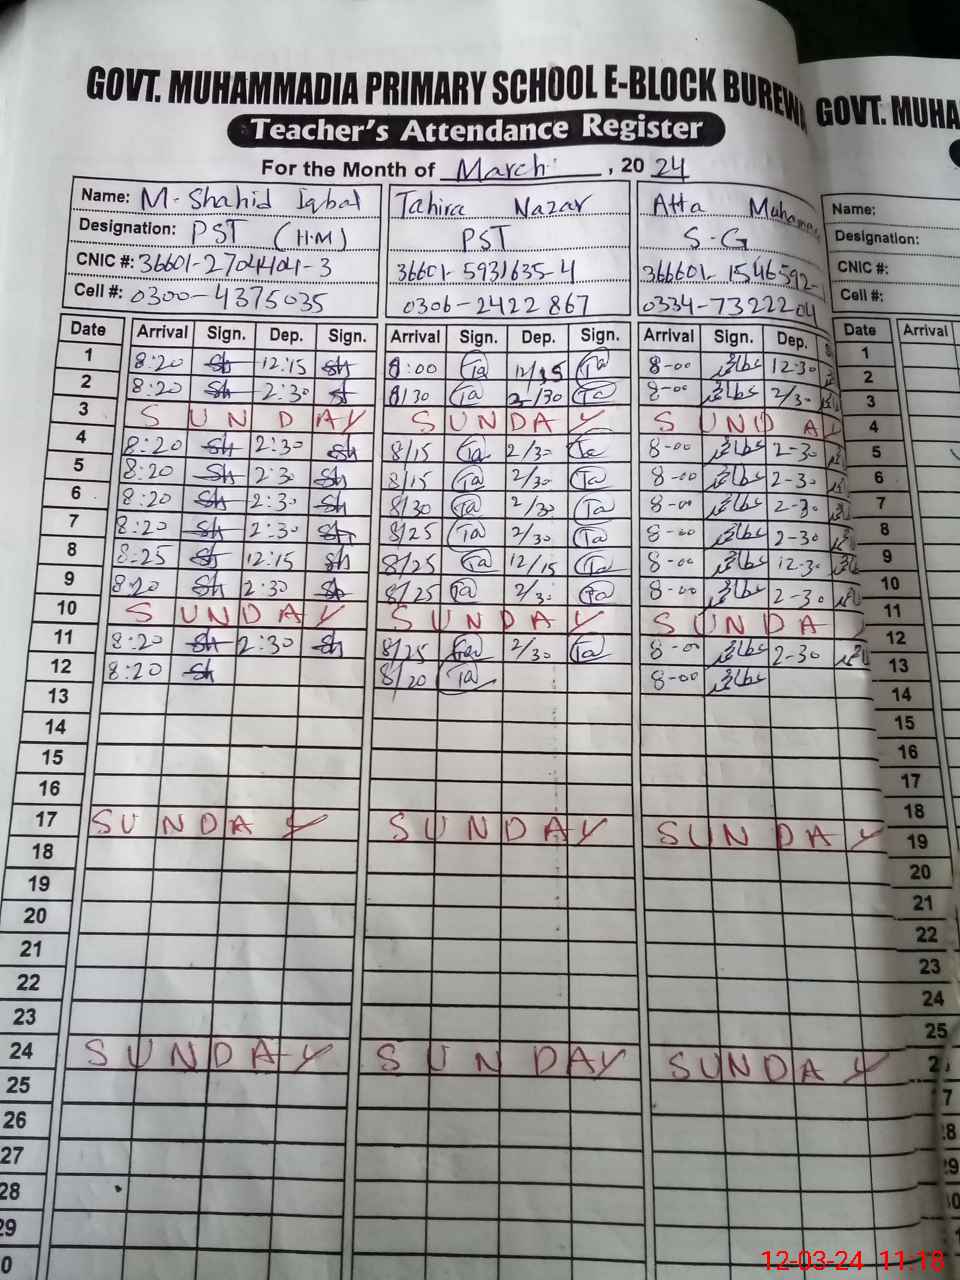 GOVT. MUHAMMADIA PRIMARY SCHOOL E-BLOCK BUREWA GOVT. MUHA
Teacher's Attendance Register
For the Month of March, 2024
Name: M. Shahid Iqbal Tahira Nazar Atta Muhamm Name:
Designation: PST (H.M) PST S-G Designation:
CNIC #: 36601-2704404-3 36601-5931635-4 366601-1546592- CNIC #:
Cell #: 0300-4375035 0306-2422867 0334-7322204 Cell #:
Date Arrival Sign. Dep. Sign. Arrival Sign. Dep. Sign. Arrival Sign. Dep. S Date Arrival
1 8:20 Sh 12:15 Sh 8:00 Ta 12/15 Ta 8-00 12-30 1
2 8:20 Sh 2:30 Sh 8/30 Ta 2/30 Ta 8-00 2/30 2
3 SUNDAY SUNDAY SUNDAY 3
4 8:20 Sh 2:30 Sh 8/15 Ta 2/30 Ta 8-00 2-30 4
5 8:20 Sh 2:30 Sh 8/15 Ta 2/30 Ta 8-00 2-30 5
6 8:20 Sh 2:30 Sh 8/30 Ta 2/30 Ta 8-00 2-30 6
7 8:20 Sh 2:30 Sh 8/25 Ta 2/30 Ta 8-00 2-30 7
8 8:25 Sh 12:15 Sh 8/25 Ta 12/15 Ta 8-00 12-30 8
9 8:20 Sh 2:30 Sh 8/25 Ta 2/30 Ta 8-00 2-30 9
10 SUNDAY SUNDAY SUNDA 10
11 8:20 Sh 2:30 Sh 8/25 Ta 2/30 Ta 8-00 2-30 11
12 8:20 Sh 8/20 Ta 8-00 12
13 13
14 14
15 15
16 16
17 SUNDAY SUNDAY SUNDAY 17
18 18
19 19
20 20
21 21
22 22
23 23
24 SUNDAY SUNDAY SUNDAY 24
25 25
26 2
27 7
28 8
29 9
0 0
12-03-24 11:18